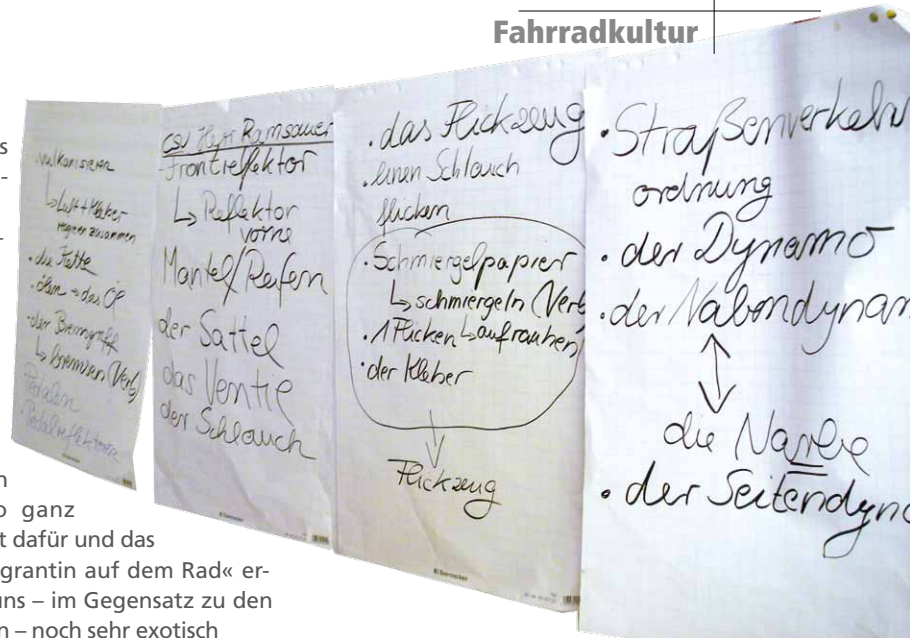 Fahrradkultur
vulkanisieren
↳ Luft + Kleber
zusammen
· die Kette
· ölen → das Öl
· der Bremsgriff
↳ bremsen (Verb)
Pedalen
· Pedalreflektoren
CSU Herr Ramsauer
Frontreflektor
↳ Reflektor
vorne
Mantel/Reifen
der Sattel
das Ventil
der Schlauch
· das Flickzeug
· einen Schlauch
flicken
· Schmiergelpapier
↳ schmiergeln (Verb
· 1 Flicken ↳ aufrauhen
· der Kleber
Flickzeug
· Straßenverkehr
ordnung
· der Dynamo
· der Nabendynam
die Narbe
· der Seitendyn
ganz
t dafür und das
grantin auf dem Rad« er-
uns – im Gegensatz zu den
n – noch sehr exotisch